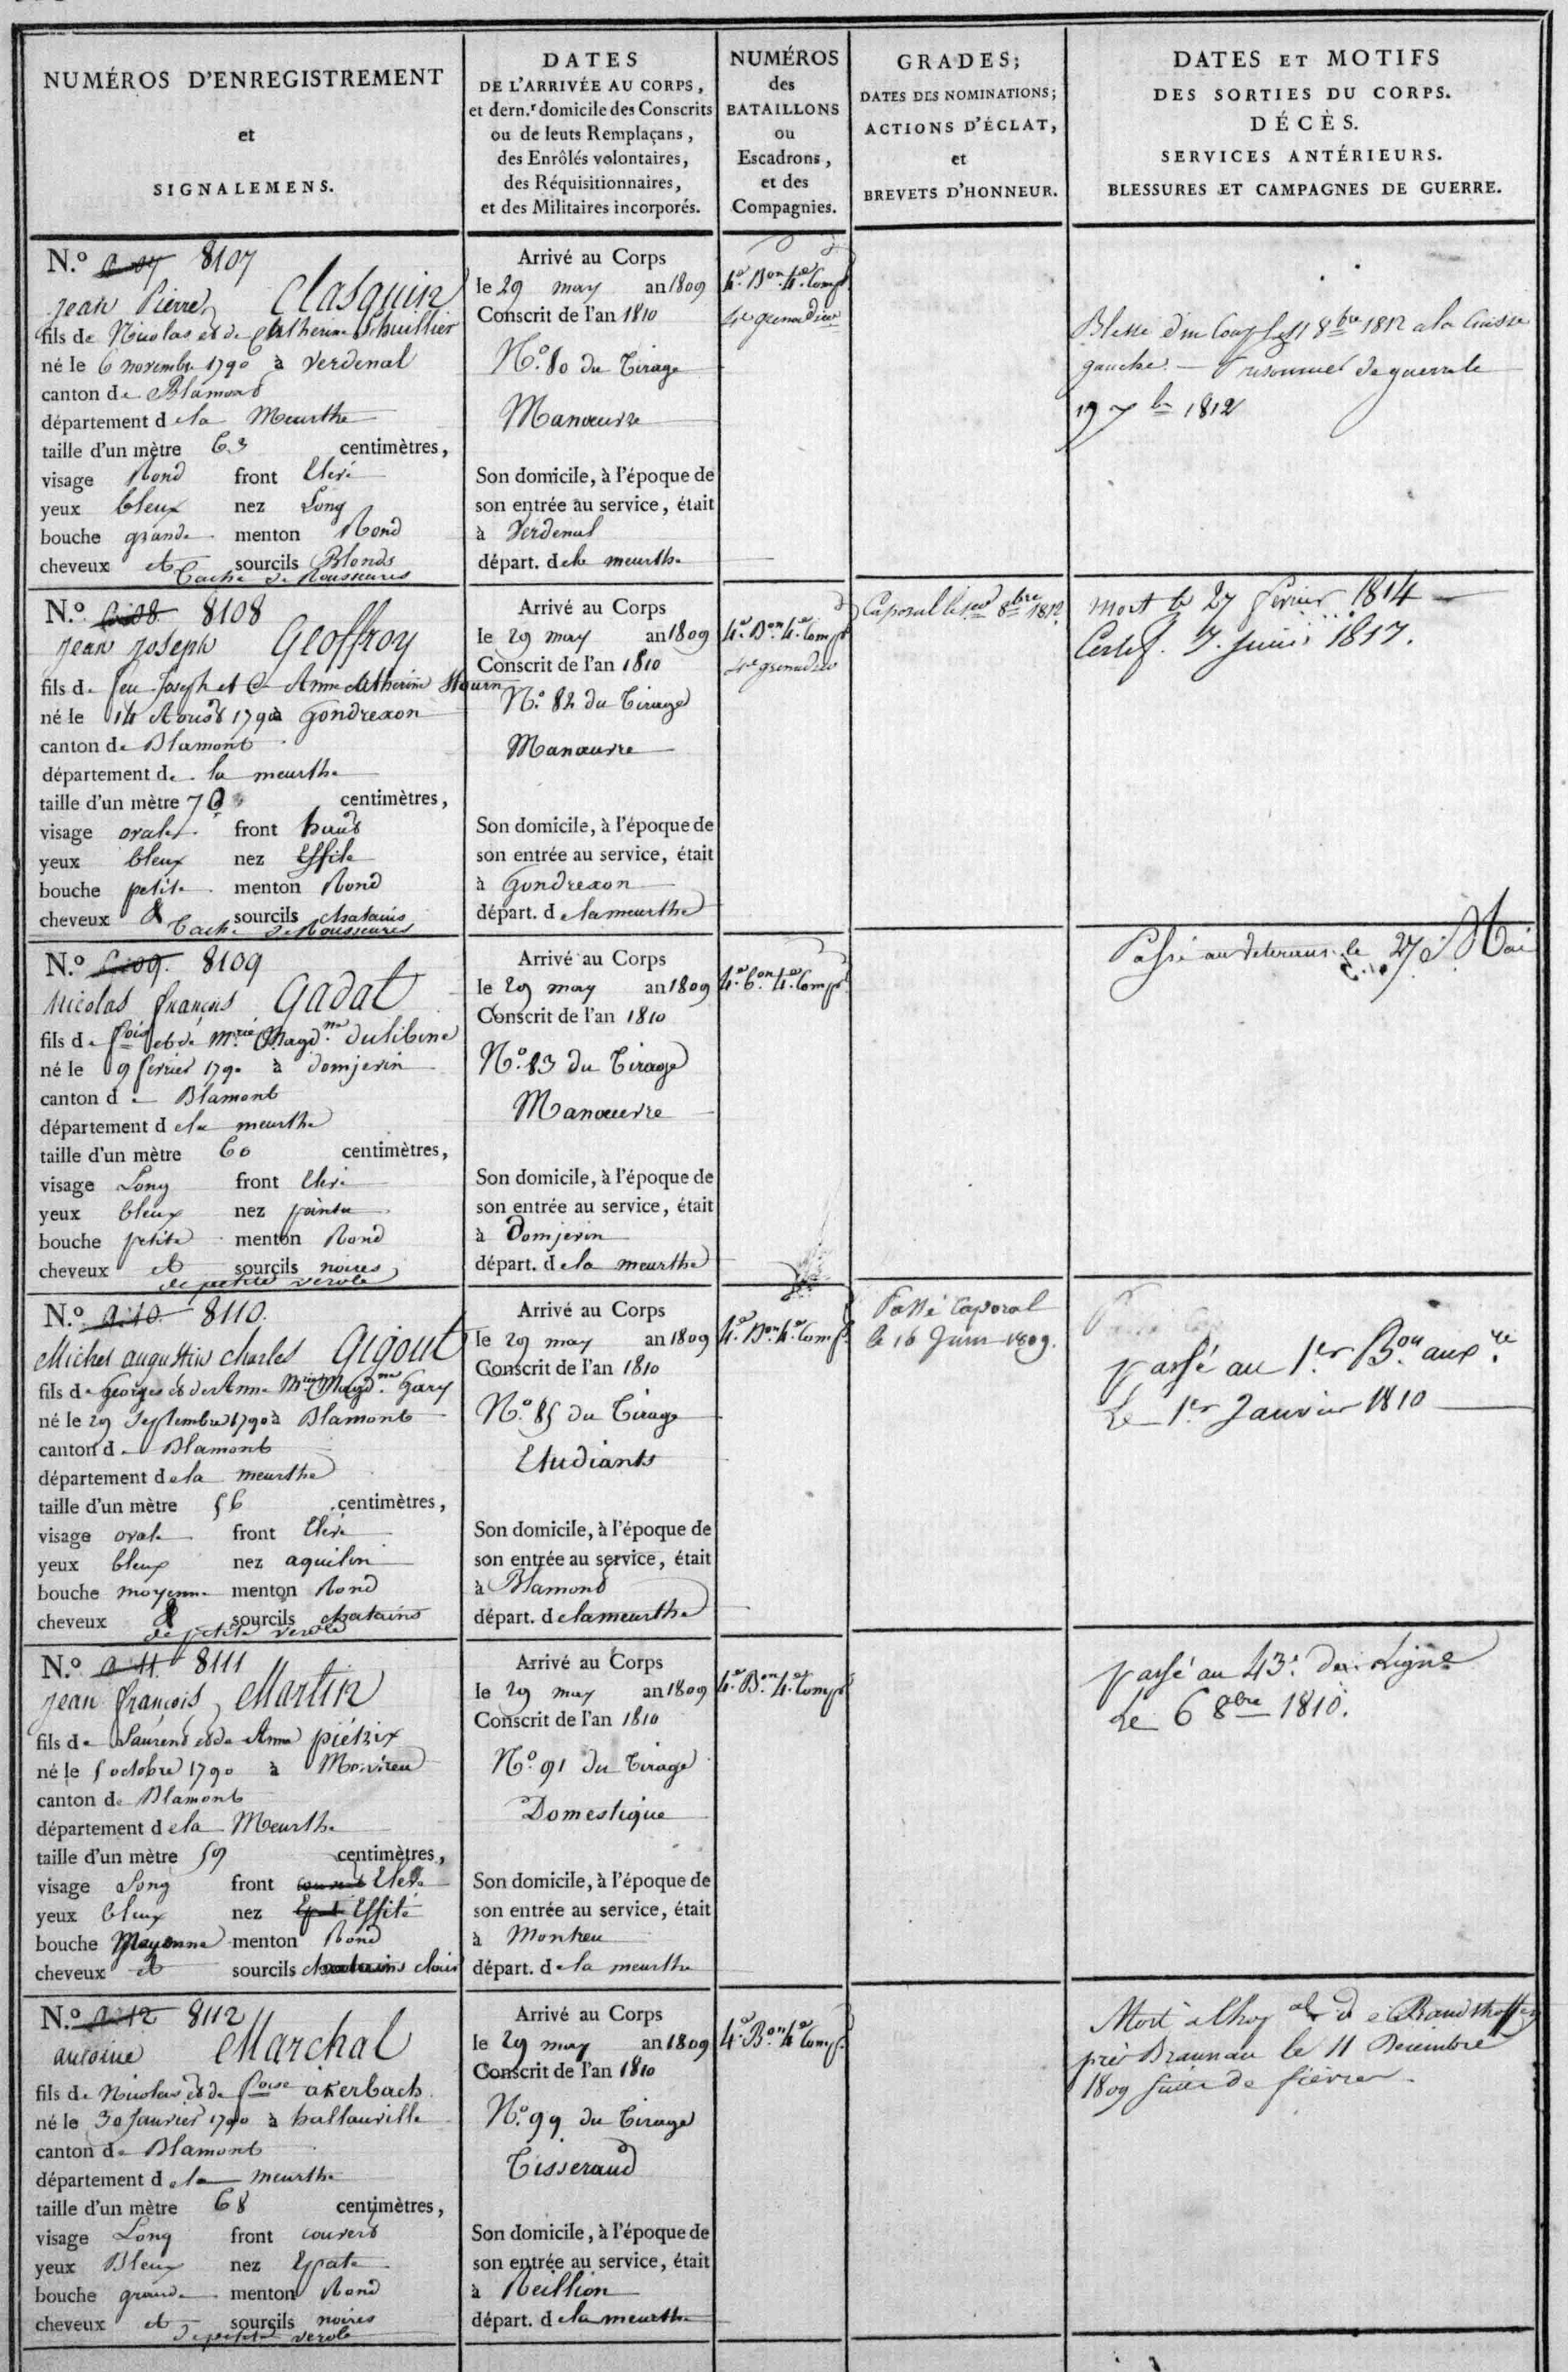 NUMÉROS D'ENREGISTREMENT
et
SIGNALEMENS.
DATES
DE L'ARRIVÉE AU CORPS,
et dern.r domicile des Conscrits
ou de leuts Remplaçans,
des Enrôlés volontaires,
des Réquisitionnaires,
et des Militaires incorporés.
NUMÉROS
des
BATAILLONS
ou
Escadrons,
et des
Compagnies.
GRADES;
DATES DES NOMINATIONS;
ACTIONS D'ÉCLAT,
et
BREVETS D'HONNEUR.
DATES ET MOTIFS
DES SORTIES DU CORPS.
DÉCÈS.
SERVICES ANTÉRIEURS.
BLESSURES ET CAMPAGNES DE GUERRE.
N.o 8107
Jean Pierre Clasquin
fils de Nicolas et de Catherine Thuillier
né le 6 novembre 1790 à Verdenal
canton de Blamont
département de la Meurthe
taille d'un mètre 63 centimètres,
visage Rond front Elevé
yeux bleux nez Long
bouche grande menton Rond
cheveux et sourcils Blonds
Tache de Rousseures
Arrivé au Corps
le 29 may an 1809
Conscrit de l'an 1810
N.o 80 du Tirage
Manœuvre
Son domicile, à l'époque de
son entrée au service, était
à Verdenal
départ. de la meurthe
4.e B.on 4.e Comp.
4.e grenadier
Blessé d'un Coup 8bre 1812 a la Cuisse
gauche. — Prisonnier de guerre le
19 7bre 1812
N.o 8108
Jean Joseph Geoffroy
fils de feu Joseph et de Anne Catherine
né le 14 Aoust 1790 à Gondrexon
canton de Blamont
département de la meurthe
taille d'un mètre 70 centimètres,
visage ovale front haut
yeux bleux nez Effilé
bouche petite menton Rond
cheveux & sourcils chatains
Tache de Rousseures
Arrivé au Corps
le 29 may an 1809
Conscrit de l'an 1810
N.o 82 du Tirage
Manœuvre
Son domicile, à l'époque de
son entrée au service, était
à Gondrexon
départ. de la meurthe
4.e B.on 4.e Comp.
4.e grenadier
Caporal le 1er 8bre 1812.
mort le 27 février 1814
Certif. 7. Juin 1817.
N.o 8109
Nicolas françois Gadat
fils de fois et de Mrie Magd.ne Dulibine
né le 9 février 1790 à domjevin
canton de Blamont
département de la meurthe
taille d'un mètre 60 centimètres,
visage Long front Elevé
yeux bleux nez pointu
bouche petite menton Rond
cheveux et sourcils noires
de petite verole
Arrivé au Corps
le 29 may an 1809
Conscrit de l'an 1810
N.o 83 du Tirage
Manœuvre
Son domicile, à l'époque de
son entrée au service, était
à Domjevin
départ. de la meurthe
4.e b.on 4.e Comp.
Passé au Veterans le 27 Mai
N.o 8110.
Michel augustin charles Gigout
fils de Georges et de Anne Mrie Magd.ne Gary
né le 29 Septembre 1790 à Blamont
canton de Blamont
département de la meurthe
taille d'un mètre 56 centimètres,
visage ovale front Elevé
yeux bleux nez aquilin
bouche moyenne menton Rond
cheveux & sourcils chatains
de petite verole
Arrivé au Corps
le 29 may an 1809
Conscrit de l'an 1810
N.o 85 du Tirage
Etudiants
Son domicile, à l'époque de
son entrée au service, était
à Blamont
départ. de la meurthe
4.e B.on 4.e Comp.
Passé Caporal
le 16 Juin 1809.
passé au 1.er B.on aux.re
Le 1.er Janvier 1810
N.o 8111
Jean françois Martin
fils de Laurent et de Anne piétrix
né le 5 octobre 1790 à
canton de Blamont
département de la Meurthe
taille d'un mètre 59 centimètres,
visage Long front Elevé
yeux bleux nez Effilé
bouche Moyenne menton Rond
cheveux et sourcils chatains clair
Arrivé au Corps
le 29 may an 1809
Conscrit de l'an 1810
N.o 91 du Tirage
Domestique
Son domicile, à l'époque de
son entrée au service, était
à Montreu
départ. de la meurthe
4.e B.on 4.e Comp.
passé au 43.e de Ligne
Le 6 8bre 1810.
N.o 8112
antoine Marchal
fils de Nicolas et de foise akerbach
né le 30 Janvier 1790 à hallauville
canton de Blamont
département de la meurthe
taille d'un mètre 68 centimètres,
visage Long front couvert
yeux Bleux nez Epaté
bouche grande menton Rond
cheveux et sourcils noires
de petite verole
Arrivé au Corps
le 29 may an 1809
Conscrit de l'an 1810
N.o 99 du Tirage
Tisserand
Son domicile, à l'époque de
son entrée au service, était
à Reillion
départ. de la meurthe
4.e B.on 4.e Comp.
Mort à l'hop.al de
près Braunau le 11 Decembre
1809 suite de fièvre.